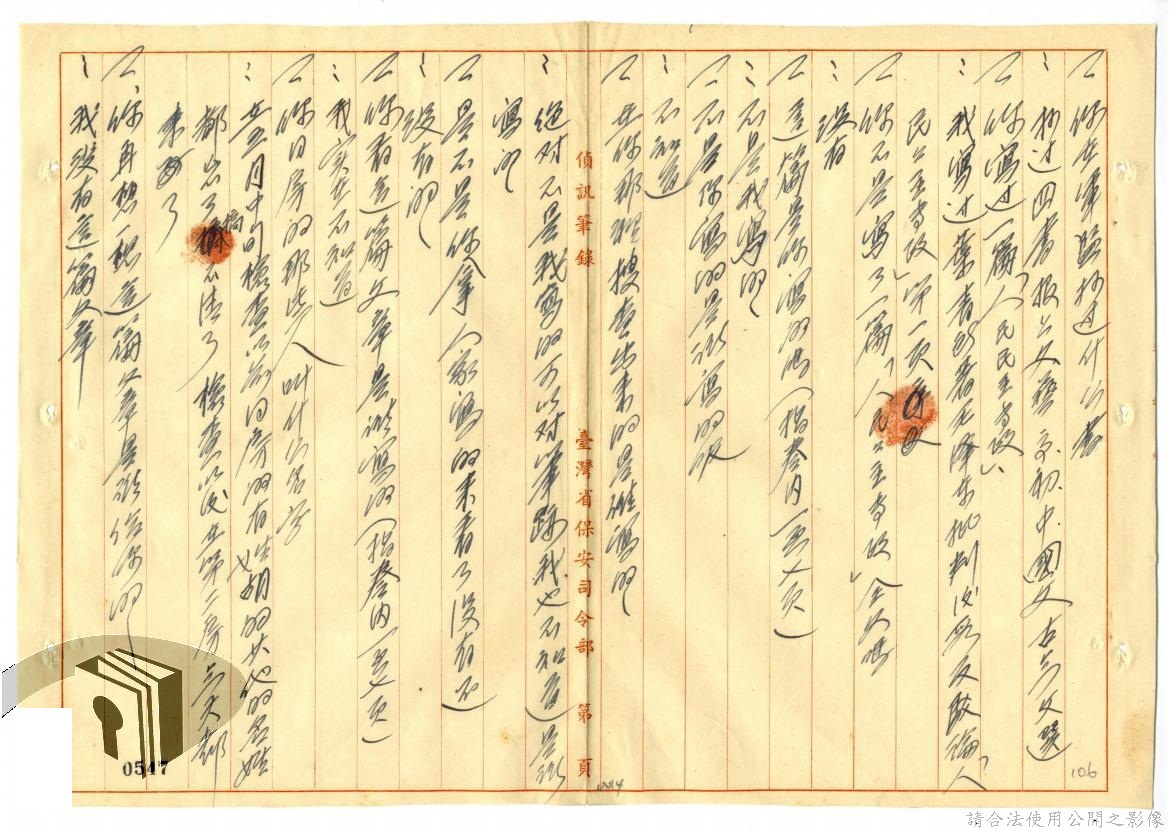 你在軍監抄過什么書
抄過四書報公文藝 高初中國文古文文選
你寫過一篇「人民民主專政」
我寫過葉青著毛澤東批判 「人
民民主專政」第一頁
你不是寫了一篇「人民民主專政」全文嗎
沒有
這篇是你寫的嗎(指卷內一頁)
不是我寫的
不是你寫的是誰寫的呢
不知道
在你那裡搜查出來的是誰寫的
絕对不是我寫的可以对筆跡我也不知道是誰
寫的
是不是你拿人家寫的來看了沒有还
沒有的
你看這篇文章是誰寫的(指卷內一頁)
我实在不知道
你同房的那些人叫什么名字
在五月中旬檢查以前同房的有姓胡的其他的名姓
都忘了 搞不清了 檢查以後在第二房 天都
來了
你再想一想這篇文章是誰給你的
我沒有這篇文章
偵訊筆錄
臺灣省保安司令部
第 頁
0547
106
請合法使用公開之影像